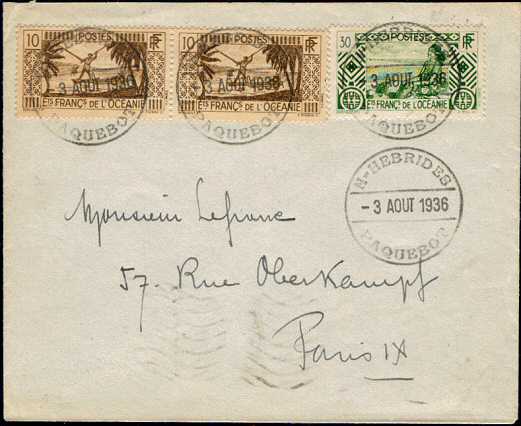 10 POSTES RF
10 POSTES RF
30 POSTES RF
3 AOUT 1936
3 AOUT 1936
3 AOUT 1936
ETS FRANÇS DE L'OCÉANIE
ETS FRANÇS DE L'OCÉANIE
ETS FRANÇS DE L'OCÉANIE
PAQUEBOT
PAQUEBOT
PAQUEBOT
N-HEBRIDES
- 3 AOUT 1936
PAQUEBOT
Monsieur Lefranc
57. Rue Oberkampf
Paris IX